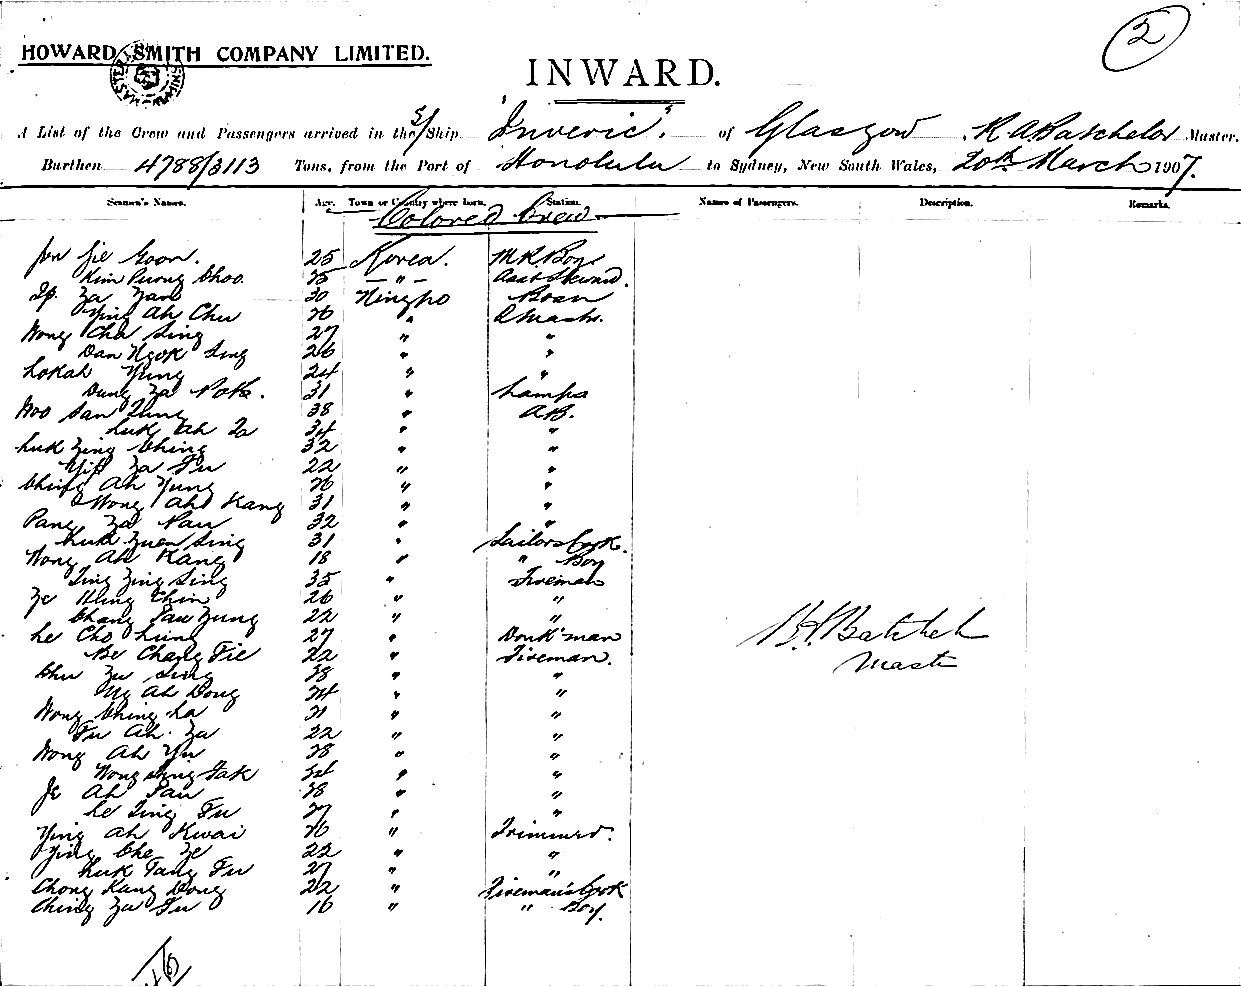 2
HOWARD SMITH COMPANY LIMITED.
INWARD.
A List of the Crew and Passengers arrived in the S/Ship "Inveric" of Glasgow R. A. Batchelor Master.
Burthen 4788/3113 Tons, from the Port of Honolulu to Sydney, New South Wales, 20th March 1907.
Seamen's Names. Age. Town or Country where born. Station. Names of Passengers. Description. Remarks.
Colored Crew
25 Korea. M.R. Boy
Kim Purong Choo. 25 — " — Asst Steward.
30 Ningpo Bosn
Ying Ah Chu 26 "
Wong Cha Sing 27 " "
Dan Ngok Sing 26 " "
Lokah Yung 24 " "
Dung Za Poh. 31 " Lamps
Woo San 38 " A.B.
Luk Ah Za 34 " "
Luk Zing Ching 32 " "
Yip Za Fu 22 " "
Ching Ah Yung 26 " "
Wong Ah Kang 31 " "
Pang Za Pau 32 " "
Luk Zuen Sing 31 " Sailors Cook.
Wong Ah Kang 18 " " Boy
Ling Zing Sing 35 " Fireman
Ze Ming Chin 26 " "
Chang Pau Zung 22 " "
Le Cho Lung 27 " Donk'man
Be Chang Fie 22 " Fireman.
Chu Zu Sing 28 " "
Ng Ah Dong 24 " "
Wong Ching La 21 " "
Fu Ah Za 22 " "
Wong Ah Yu 28 " "
Wong Sing Gak 34 " "
Je Ah Pau 28 " "
Le Ling Fu 27 " "
Ying Ah Kwai 26 " Trimmers.
Ying Che Ze 22 " "
Luk Tang Fu 27 " "
Chong Kang Dong 22 " Fireman's Cook
Ching Za Fu 16 " " Boy.
R. A. Batchel
Master